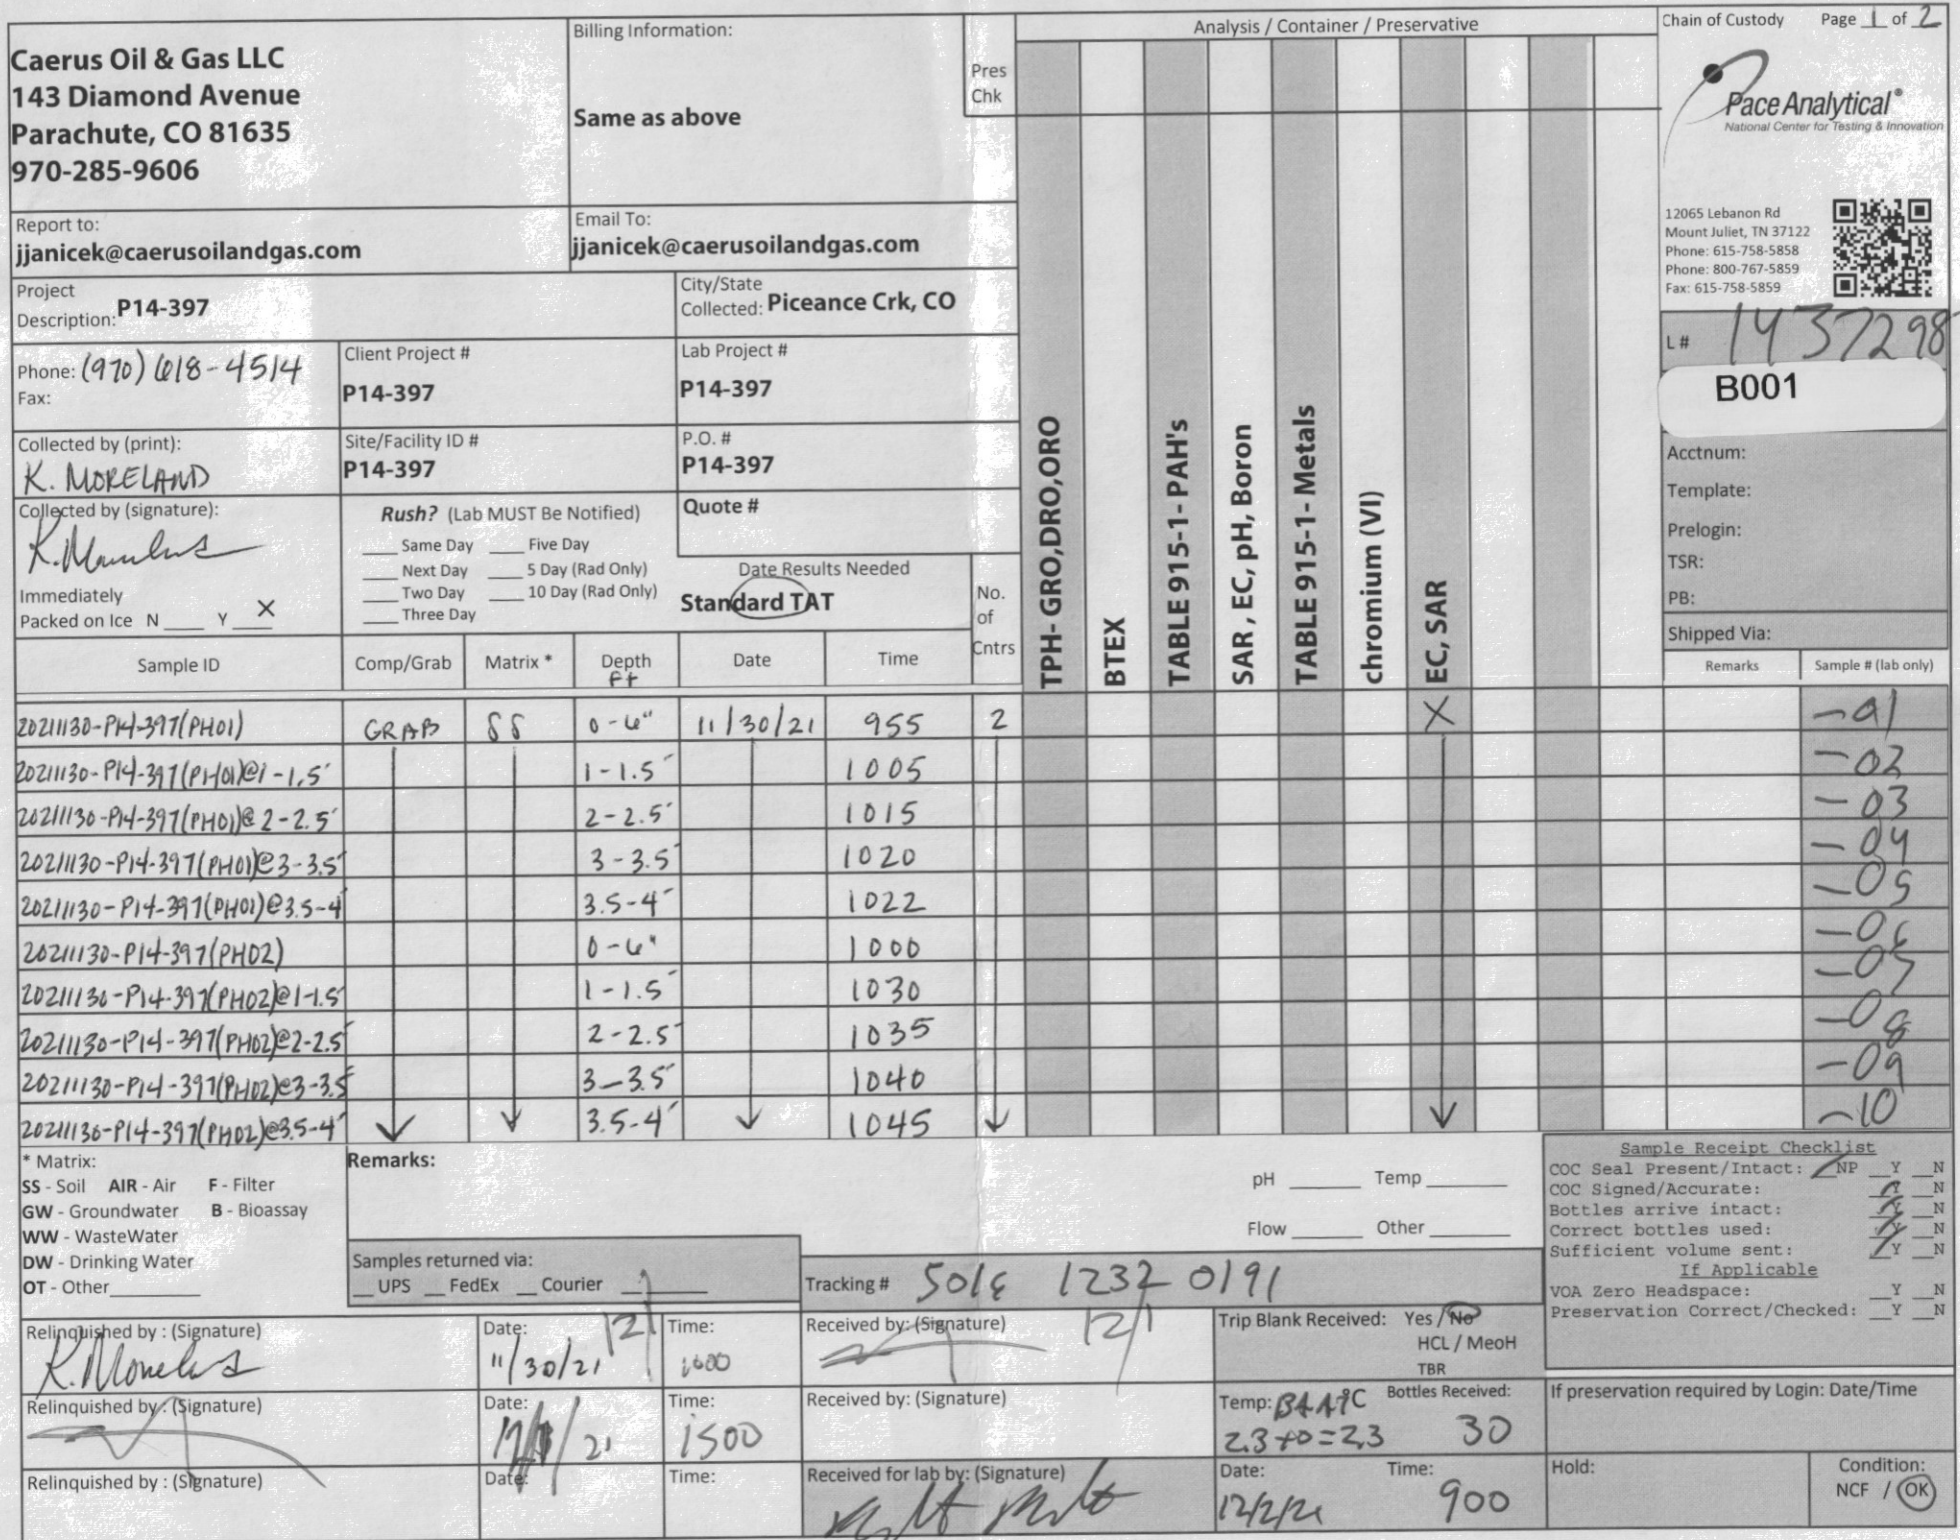 Caerus Oil & Gas LLC
143 Diamond Avenue
Parachute, CO 81635
970-285-9606
Billing Information:
Same as above
Pres
Chk
Analysis / Container / Preservative
Chain of Custody Page 1 of 2
Pace Analytical®
National Center for Testing & Innovation
12065 Lebanon Rd
Mount Juliet, TN 37122
Phone: 615-758-5858
Phone: 800-767-5859
Fax: 615-758-5859
Report to:
jjanicek@caerusoilandgas.com
Email To:
jjanicek@caerusoilandgas.com
Project
Description: P14-397
City/State
Collected: Piceance Crk, CO
Phone: (970) 618-4514
Fax:
Client Project #
P14-397
Lab Project #
P14-397
L# 1437298
B001
Collected by (print):
K. MORELAND
Site/Facility ID #
P14-397
P.O. #
P14-397
Acctnum:
Template:
Prelogin:
TSR:
PB:
Shipped Via:
Collected by (signature):
Rush? (Lab MUST Be Notified)
___ Same Day ___ Five Day
___ Next Day ___ 5 Day (Rad Only)
___ Two Day ___ 10 Day (Rad Only)
___ Three Day
Quote #
Date Results Needed
Standard TAT
Immediately
Packed on Ice N ___ Y X
No.
of
Cntrs
TPH- GRO,DRO,ORO
BTEX
TABLE 915-1- PAH's
SAR, EC, pH, Boron
TABLE 915-1- Metals
chromium (VI)
EC, SAR
Sample ID Comp/Grab Matrix * Depth Date Time Remarks Sample # (lab only)
Ft
20211130-P14-397(PH01) GRAB SS 0-6" 11/30/21 955 2 X -01
20211130-P14-397(PH01)@1-1.5' 1-1.5' 1005 -02
20211130-P14-397(PH01)@2-2.5' 2-2.5' 1015 -03
20211130-P14-397(PH01)@3-3.5' 3-3.5' 1020 -04
20211130-P14-397(PH01)@3.5-4' 3.5-4' 1022 -05
20211130-P14-397(PH02) 0-6" 1000 -06
20211130-P14-397(PH02)@1-1.5' 1-1.5' 1030 -07
20211130-P14-397(PH02)@2-2.5' 2-2.5' 1035 -08
20211130-P14-397(PH02)@3-3.5' 3-3.5' 1040 -09
20211130-P14-397(PH02)@3.5-4' 3.5-4' 1045 -10
* Matrix:
SS - Soil AIR - Air F - Filter
GW - Groundwater B - Bioassay
WW - WasteWater
DW - Drinking Water
OT - Other
Remarks:
pH ______ Temp ______
Flow ______ Other ______
Sample Receipt Checklist
COC Seal Present/Intact: NP __Y __N
COC Signed/Accurate: Y __N
Bottles arrive intact: Y __N
Correct bottles used: Y __N
Sufficient volume sent: Y __N
If Applicable
VOA Zero Headspace: __Y __N
Preservation Correct/Checked: __Y __N
Samples returned via:
__ UPS __ FedEx __ Courier
Tracking # 5016 1232 0191
Relinquished by : (Signature)
Date: 12/1
11/30/21
Time:
1600
Received by: (Signature)
12/1
Trip Blank Received: Yes / No
HCL / MeoH
TBR
Relinquished by : (Signature)
Date:
21
Time:
1500
Received by: (Signature)
Temp: °C Bottles Received:
2.3+0=2.3 30
If preservation required by Login: Date/Time
Relinquished by : (Signature)
Date:
Time:
Received for lab by: (Signature)
Date: Time:
12/2/21 900
Hold:
Condition:
NCF / OK